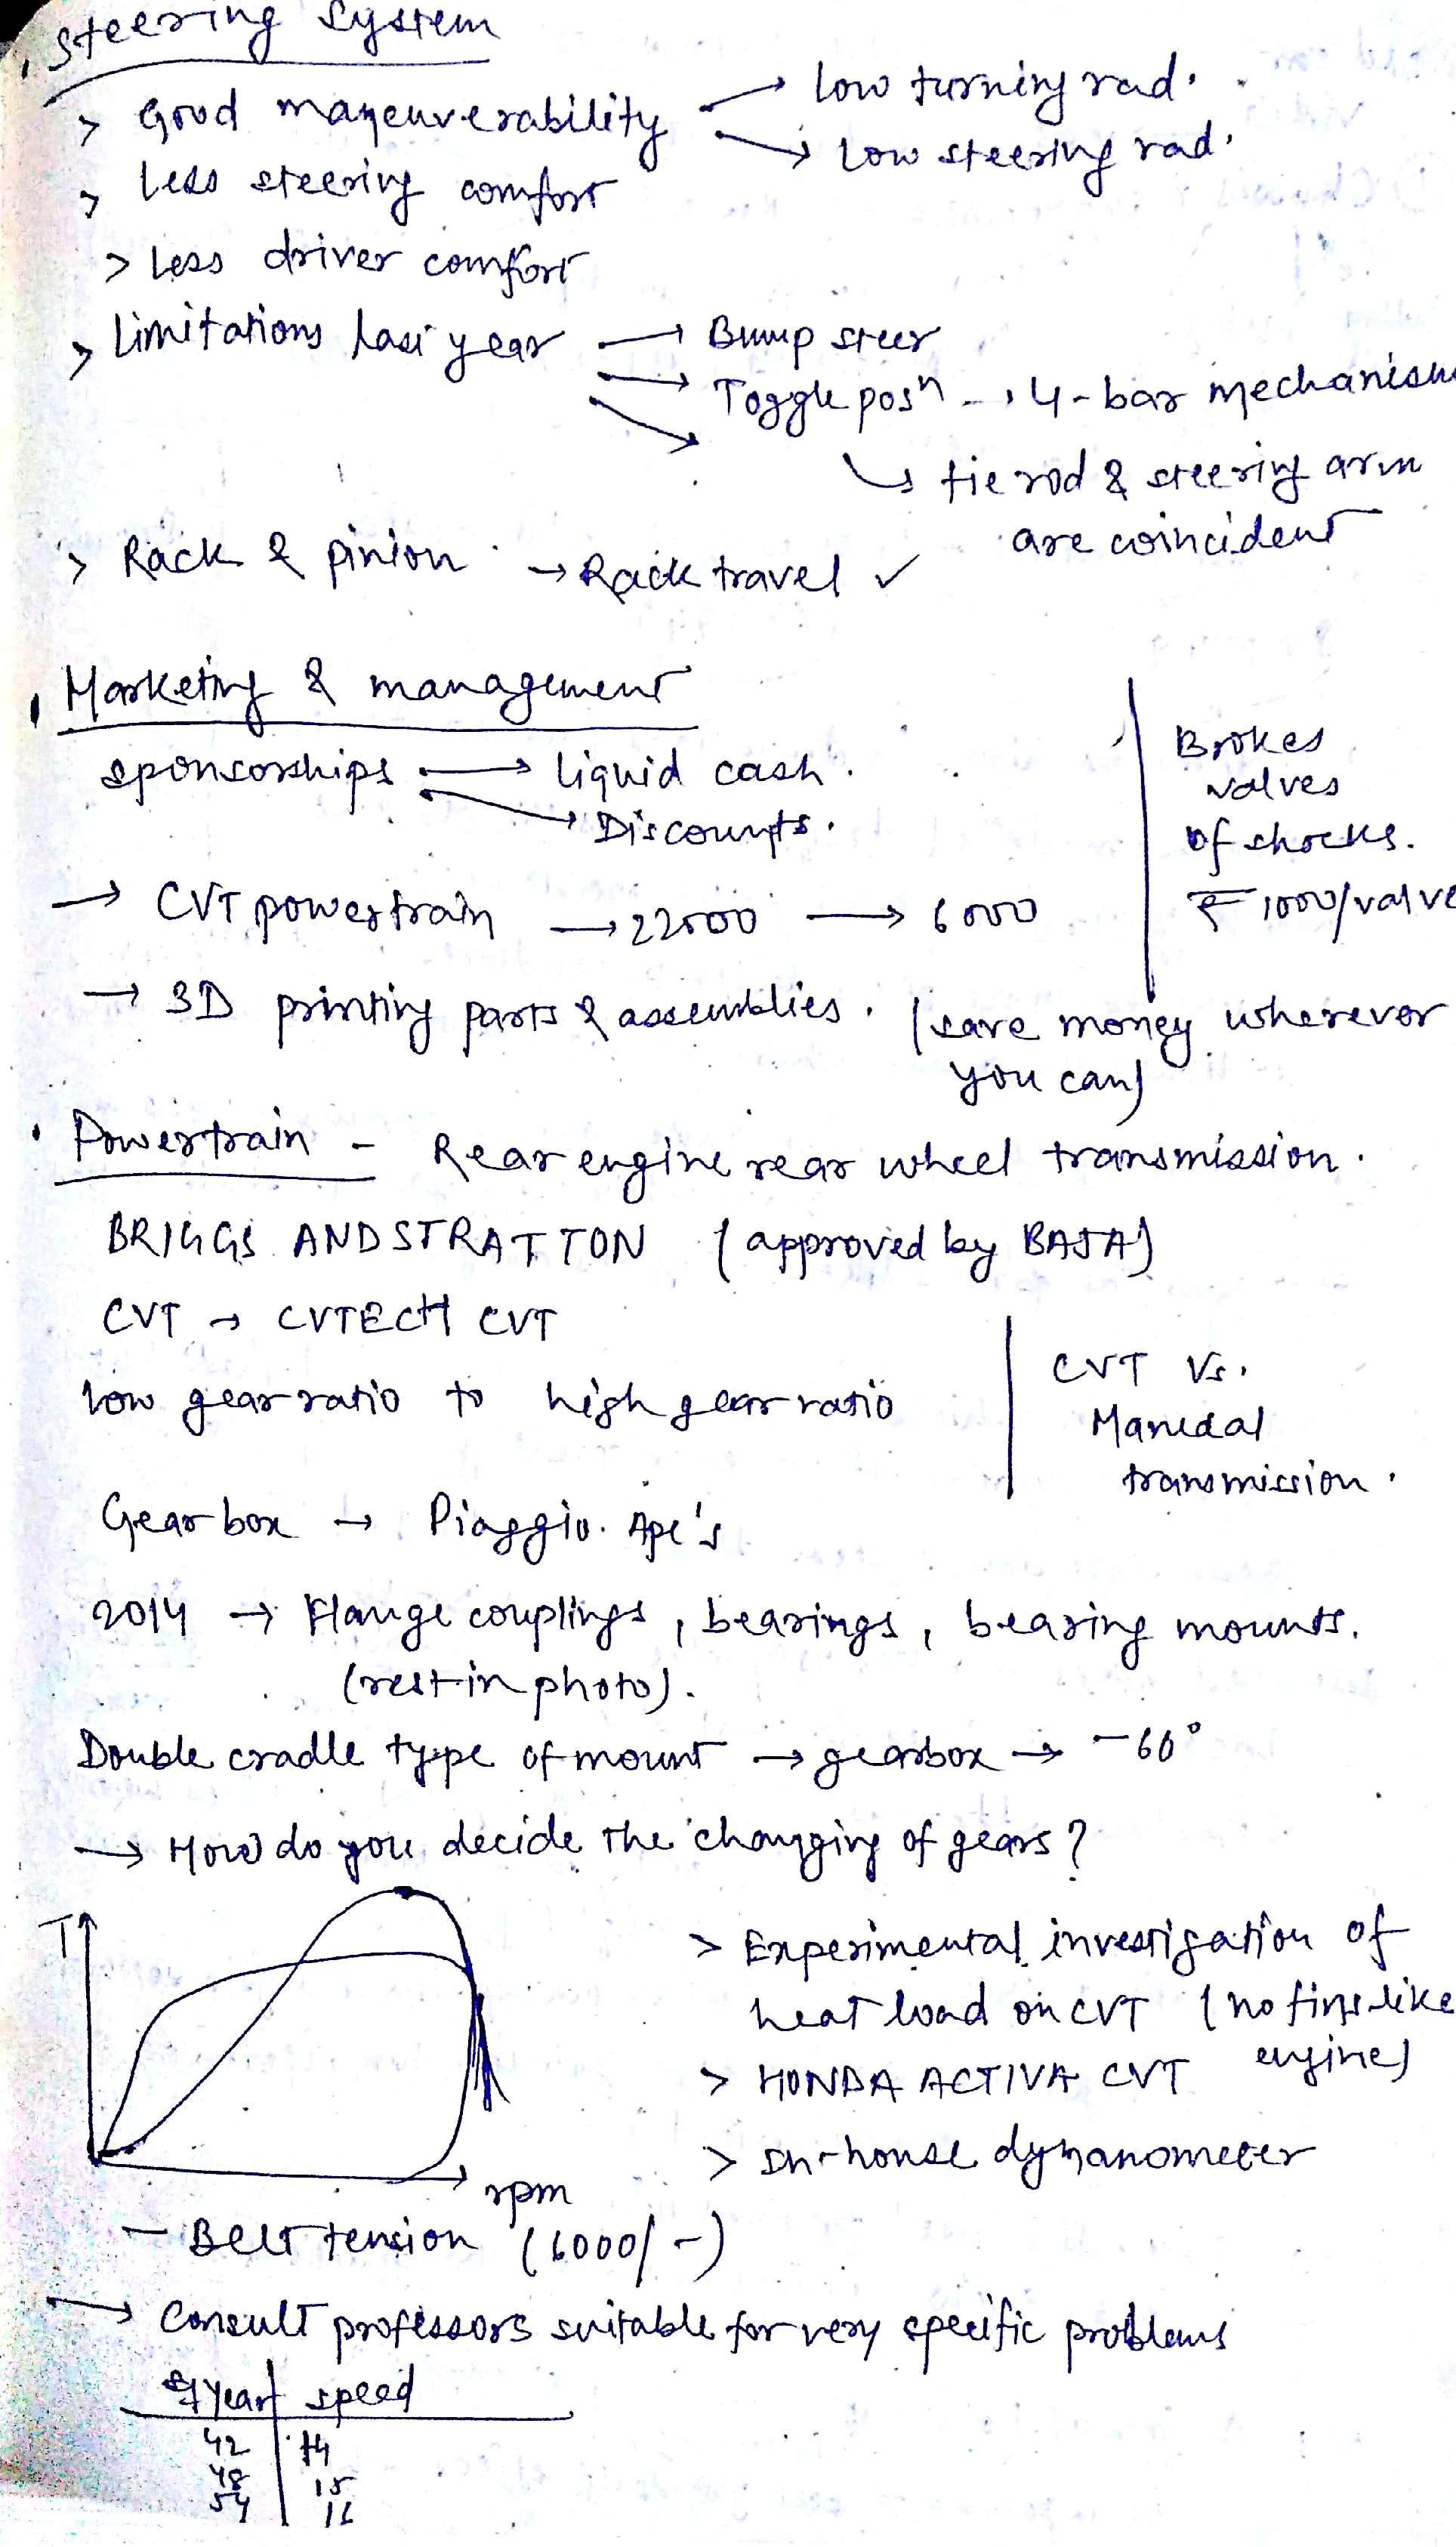 Steering System
> Good maneuverability → low turning rad.
→ Low steering rad.
> less steering comfort
> less driver comfort
> limitations last year → Bump steer
→ Toggle posn → 4-bar mechanism
↳ tie rod & steering arm
are coincident
> Rack & pinion → Rack travel ✓
Marketing & management
sponsorships → liquid cash.
→ Discounts.
Brokes
valves
of shocks.
₹ 1000/valve
→ CVT powertrain → 22000 → 6000
→ 3D printing parts & assemblies. (save money wherever
you can)
Powertrain - Rear engine rear wheel transmission.
BRIGGS AND STRATTON (approved by BAJA)
CVT → CVTECH CVT
low gear ratio to high gear ratio
CVT Vs.
Manual
transmission.
Gear box → Piaggio Ape's
2014 → Flange couplings, bearings, bearing mounts.
(rest in photo).
Double cradle type of mount → gearbox → -60°
→ How do you decide the changging of gears?
T
rpm
> Experimental investigation of
heat load on CVT (no fins like
engine)
> HONDA ACTIVA CVT
> In-house dynanometer
- Belt tension (6000/-)
→ Consult professors suitable for very specific problems
year speed
42 14
48 15
54 16